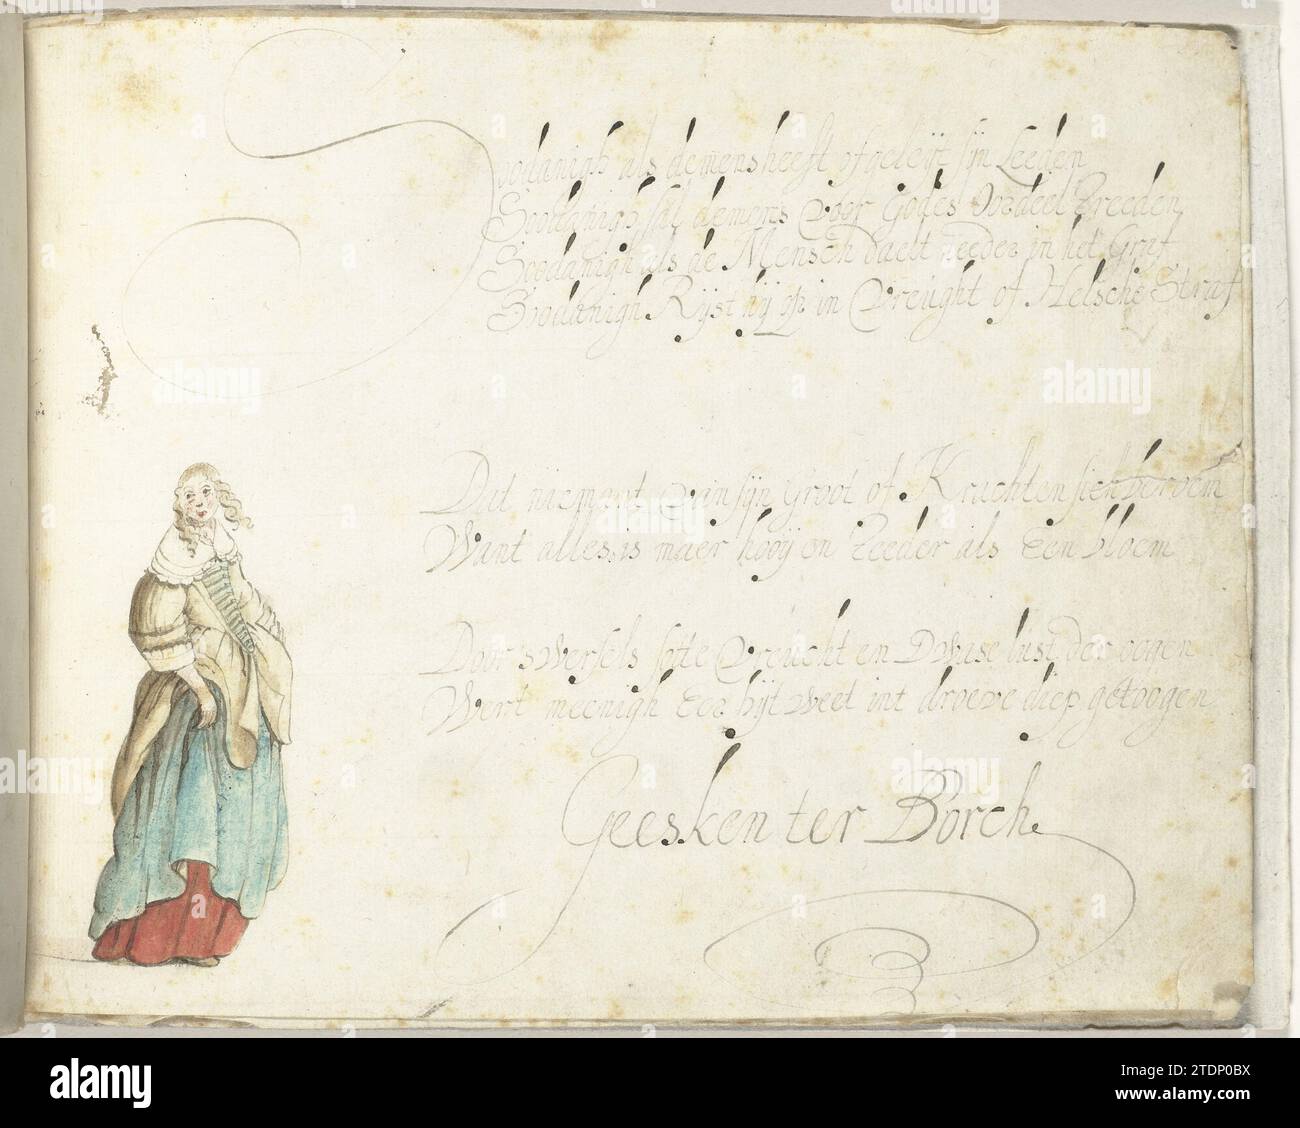 Soodanigh als de mens heeft of geleijt sijn Leeden
Soodanigh sal de mens Voor Godes Oordeel treeden
Soodanigh als de Mensch daelt needer in het Graf
Soodanigh Rijst hij op in Vreught of Helsche Straf
Dat niemant van sijn Groot of Krachten sich beroem
Want alles is maer hooij en teeder als Een bloem
Door swerfels sotte Vreucht en Dwase lust der oogen
Wert meenigh Eer hijt weet int droeve diep getoogen
Geesken ter Borch
alamy
Image ID: 2TDP0BX
www.alamy.com